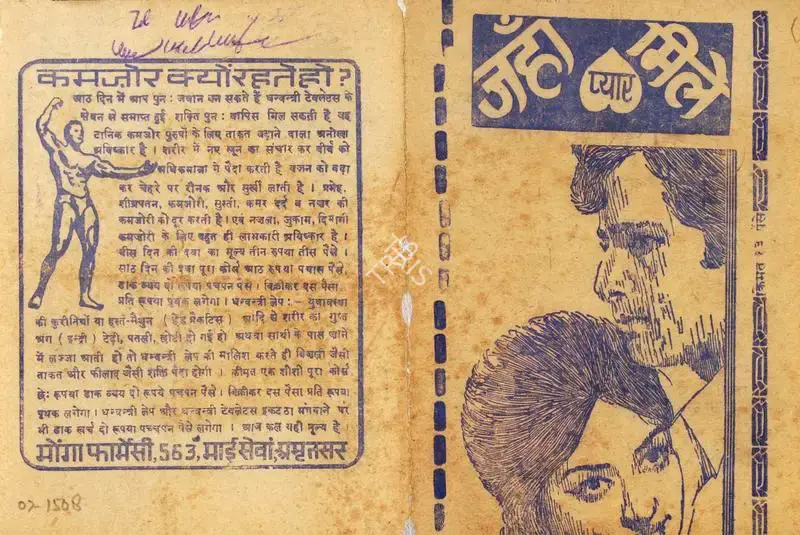 कमज़ोर क्यों रहते हो ?
आठ दिन में आप पुनः जवान बन सकते हैं धन्वन्त्री टेबलेटस के
सेवन से समाप्त हुई शक्ति पुनः वापिस मिल सकती है यह
टानिक कमजोर पुरुषों के लिए ताकत बढ़ाने वाला अनोखा
अविष्कार है । शरीर में नए खून का संचार कर वीर्य को
अधिकमात्रा में पैदा करती है वजन को बढ़ा
कर चेहरे पर रौनक और सुर्खी लाती है । प्रमेह,
शीघ्रपतन, कमजोरी, सुस्ती, कमर दर्द व नजर की
कमजोरी को दूर करती है । एवं नजला, जुकाम, दिमागी
कमजोरी के लिए बहुत ही लाभकारी अविष्कार है ।
बीस दिन की दवा का मूल्य तीन रुपया तीस पैसे ।
साठ दिन की दवा पूरा कोर्स आठ रुपया पचास पैसे,
डाक व्यय दो रुपया पचपन पैसे । बिक्रीकर दस पैसा
प्रति रुपया पृथक लगेगा । धन्वन्त्री लेप :- युवावस्था
की कुरीतियों या हस्त-मैथुन ( हैंड प्रैकटिस ) आदि से शरीर का गुप्त
अंग ( इन्द्री ) टेढ़ी, पतली, छोटी हो गई हो अथवा साथी के पास जाने
में लज्जा आती हो तो धन्वन्त्री लेप की मालिश करते ही बिजली जैसी
ताकत और फौलाद जैसी शक्ति पैदा होगी । कीमत एक शीशी पूरा कोर्स
छः रुपया डाक व्यय दो रूपये पचपन पैसे । बिक्रीकर दस पैसा प्रति रूपया
पृथक लगेगा । धन्वन्त्री लेप और धन्वन्त्री टेबलेटस इकटठा मंगवाने पर
भी डाक खर्च दो रूपया पच्चपन पैसे लगेगा । आज कल यही मूल्य है ।
मोंगा फार्मेसी, 563, माई सेवां, अमृतसर
02-1508
जहाँ प्यार मिले
TRIS